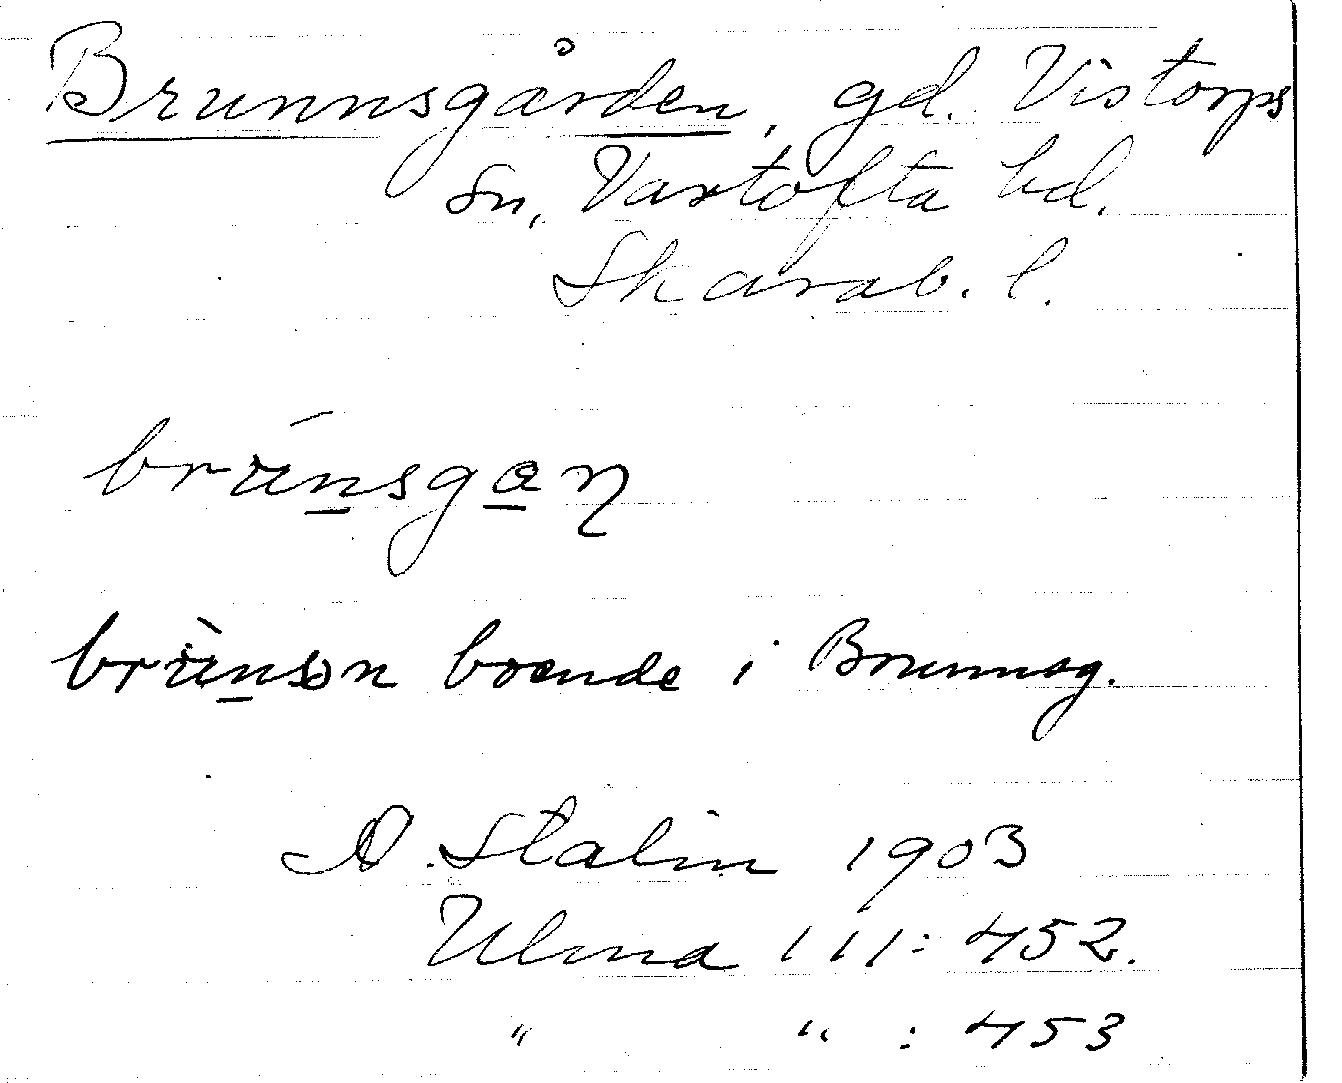 Brunnsgården, gd. Vistorps
sn, Vartofta hd.
Skarab. l.
boende i Brunnsg.
D. Stalin 1903
Ulma 111:452.
" " :453